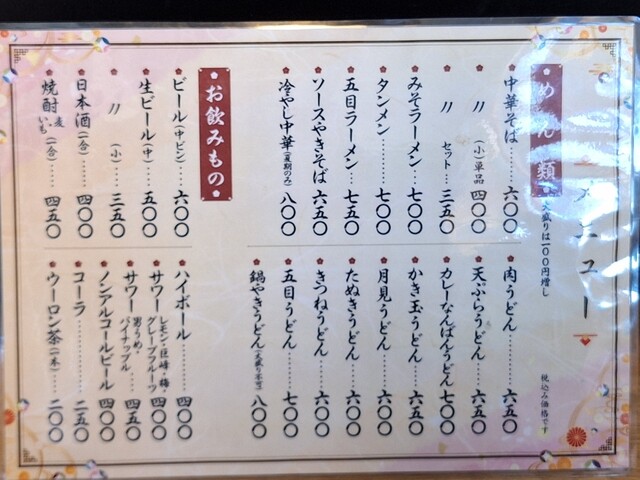 メニュー
税込み価格です
めん類
大盛りは一〇〇円増し
中華そば……六〇〇
〃(小)単品 四〇〇
〃 セット…三五〇
みそラーメン…七〇〇
タンメン……七〇〇
五目ラーメン…七五〇
ソースやきそば 六五〇
冷やし中華(夏期のみ) 八〇〇
肉うどん……六五〇
天ぷらうどん…六五〇
カレーなんばんうどん 七〇〇
かき玉うどん…六〇〇
月見うどん……六〇〇
たぬきうどん…六〇〇
きつねうどん…六〇〇
五目うどん……七〇〇
鍋やきうどん(大盛り不可) 八〇〇
お飲みもの
ビール(中ビン)…六〇〇
生ビール(中)…五〇〇
〃(小)…三五〇
日本酒(一合)…四〇〇
焼酎 麦 いも(一合)…四五〇
ハイボール……四〇〇
サワー レモン・巨峰・梅 グレープフルーツ 四〇〇
サワー 男うめ・パイナップル…四五〇
ノンアルコールビール 四〇〇
コーラ……二五〇
ウーロン茶(一本)…二〇〇